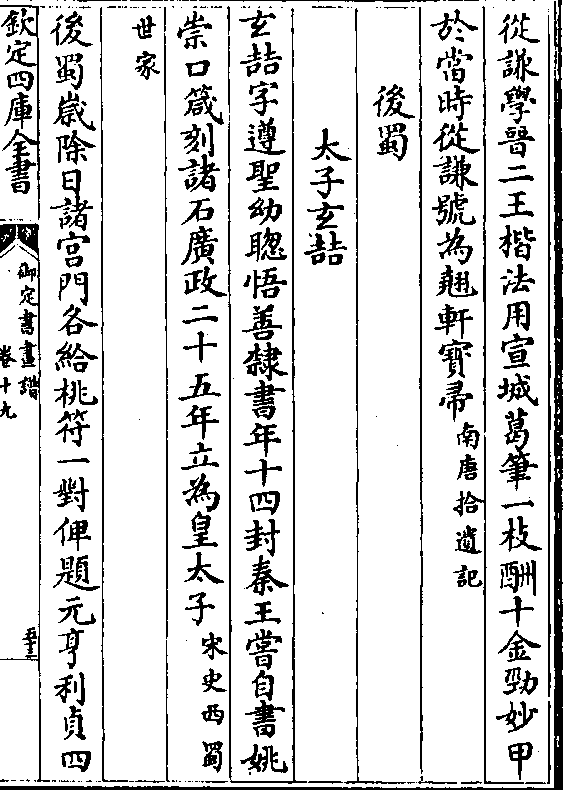 從謙學晉二王楷法用宣城葛筆一枝酬十金勁妙甲
於當時從謙號為翹軒寳帚南唐拾遺記
後蜀
太子玄喆
玄喆字遵聖幼聰悟善隸書年十四封秦王嘗自書姚
崇口箴刻諸石廣政二十五年立為皇太子宋史西蜀
世家
後蜀嵗除日諸宫門各給桃符一對俾題元亨利貞四
欽定四庫全書
御定書畫譜
卷十九